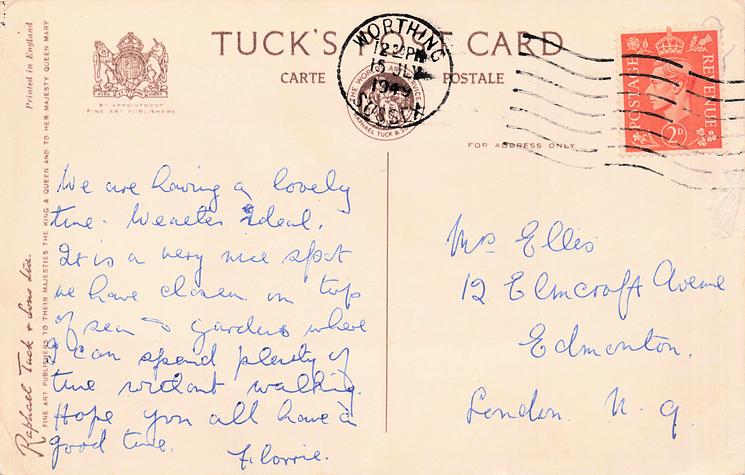 TUCK'S POST CARD
CARTE POSTALE
BY APPOINTMENT
FINE ART PUBLISHERS
Printed in England
FINE ART PUBLISHERS TO THEIR MAJESTIES THE KING & QUEEN AND TO HER MAJESTY QUEEN MARY
Raphael Tuck & Sons Ltd.
WORTHING
15 JLY
1949
SUSSEX
RAPHAEL TUCK & SONS
POSTAGE
REVENUE
2D
FOR ADDRESS ONLY
We are having a lovely
time. Weather Ideal.
It is a very nice spot
we have chosen on top
of sea & gardens where
I can spend plenty of
time without walking.
Hope you all have a
good time. Florrie.
Mrs Ellis
12 Elmcroft Avenue
Edmonton.
London. N. 9.